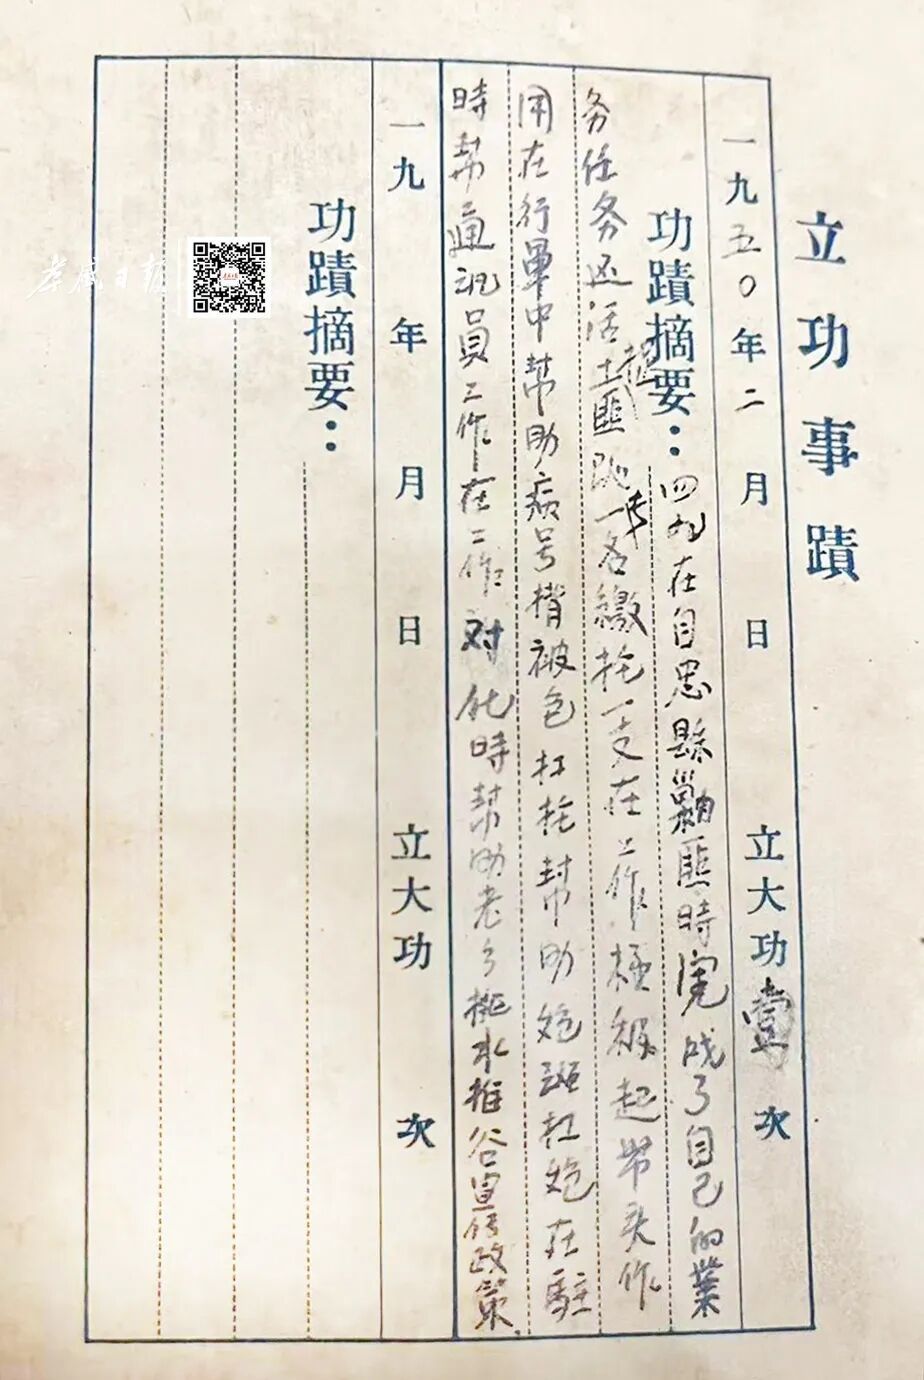 立功事蹟
一九五〇年二月 日 立大功壹次
功蹟摘要：四九在自忠縣剿匪時完成了自己的業
务任务还活捉土匪 一名缴枪一支在工作极积起带头作
用在行軍中帮助病号揹被包扛枪帮助炮班扛炮在駐
時帮通訊員工作在工作 对化時帮助老乡挑水推谷宣传政策
一九 年 月 日 立大功 次
功蹟摘要：
孝感日报